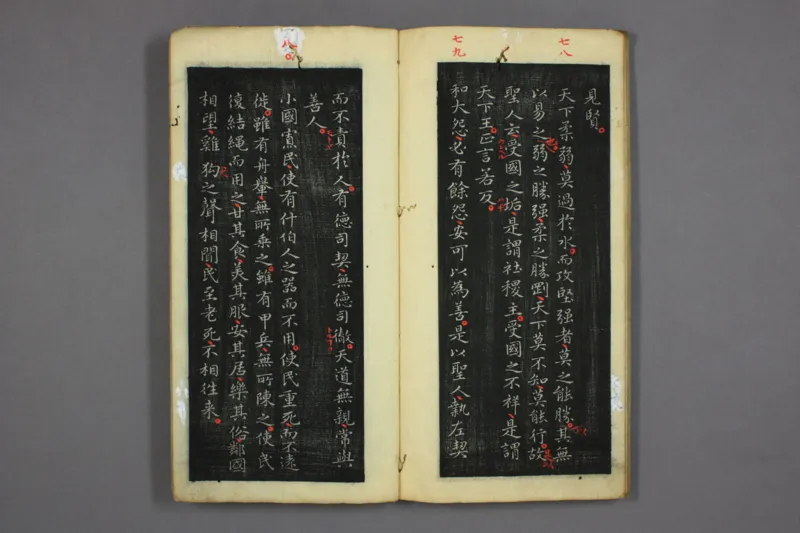 七八
七九
見賢
天下柔弱莫過於水而攻堅强者莫之能勝其無
以易之弱之勝强柔之勝剛天下莫不知莫能行故
聖人云受國之垢是謂社稷主受國之不祥是謂
天下王正言若反
和大怨必有餘怨安可以為善是以聖人執左契
八〇
而不責於人有德司契無德司徹天道無親常與
善人
小國寡民使有什伯人之器而不用使民重死而不遠
徙雖有舟轝無所乘之雖有甲兵無所陳之使民
復結繩而用之甘其食美其服安其居樂其俗鄰國
相望雞狗之聲相聞民至老死不相往来